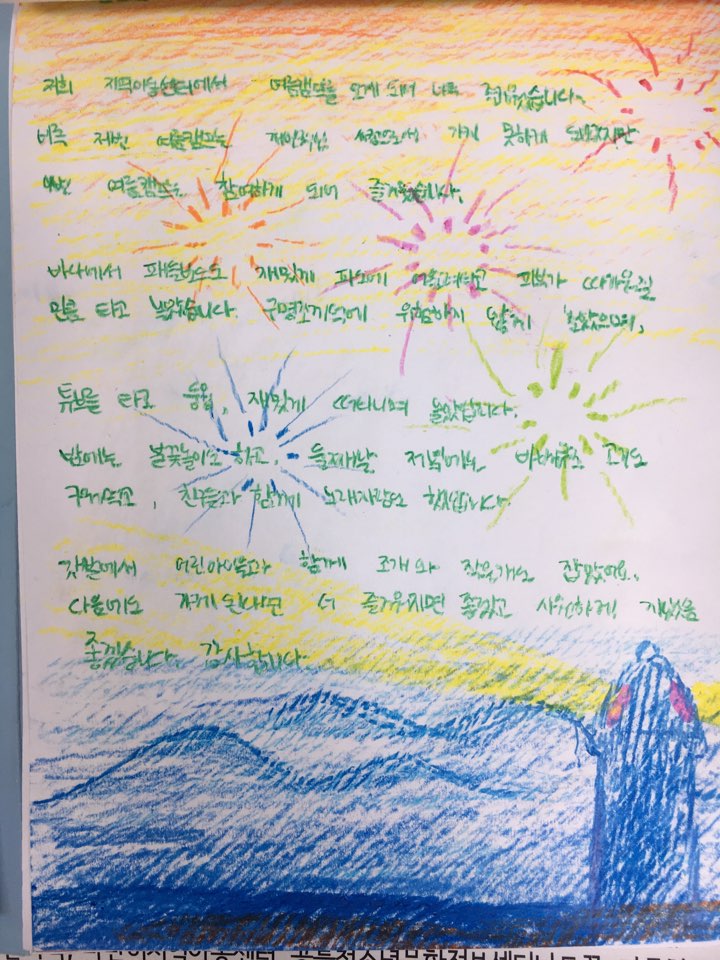 저희 지역아동센터에서 여름캠프를 오게 되어 너무 즐거웠습니다.
비록 저번 여름캠프는 개인적인 사정으로 가지 못하게 됐지만
이번 여름캠프는 참여하게 되어 즐거웠습니다.
바다에서 파도 재밌게 파도에 피부가 따가운줄
모르고 놀았습니다. 구명조끼덕에 위험하지 않게 놀았으며,
튜브를 타고 둥둥, 재밌게 떠다니며 놀았습니다.
밤에는 불꽃놀이도 하고, 둘째날 저녁에는 바베큐로 고기도
구워먹고, 친구들과 함께 노래자랑도 했습니다.
갯벌에서 어린아이들과 함께 조개와 작은게도 잡았어요.
다음에도 가게된다면 더 즐거우지면 좋겠고 시원하게 지냈음
좋겠습니다. 감사합니다.